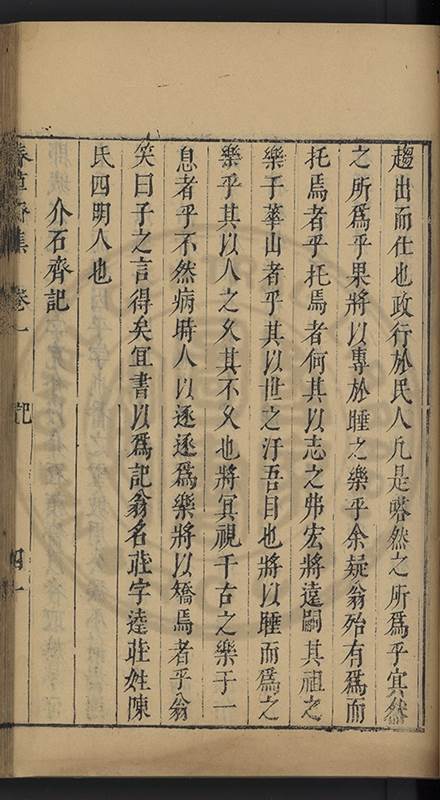 趨出而仕也政行於民人凡是喀然之所爲乎冥然
之所爲乎果將以專於睡之樂乎余疑翁殆有爲而
托焉者乎托焉者何其以志之弗宏將遠嗣其祖之
樂于華山者乎其以世之汙吾目也將以睡而爲之
樂乎其以人之夂其不夂也將冥視千古之樂于一
息者乎不然病時人以逐逐爲樂將以矯焉者乎翁
笑曰子之言得矣宜書以爲記翁名莊字逵莊姓陳
氏四明人也
介石齊記
春草齋集 卷一 記 四一